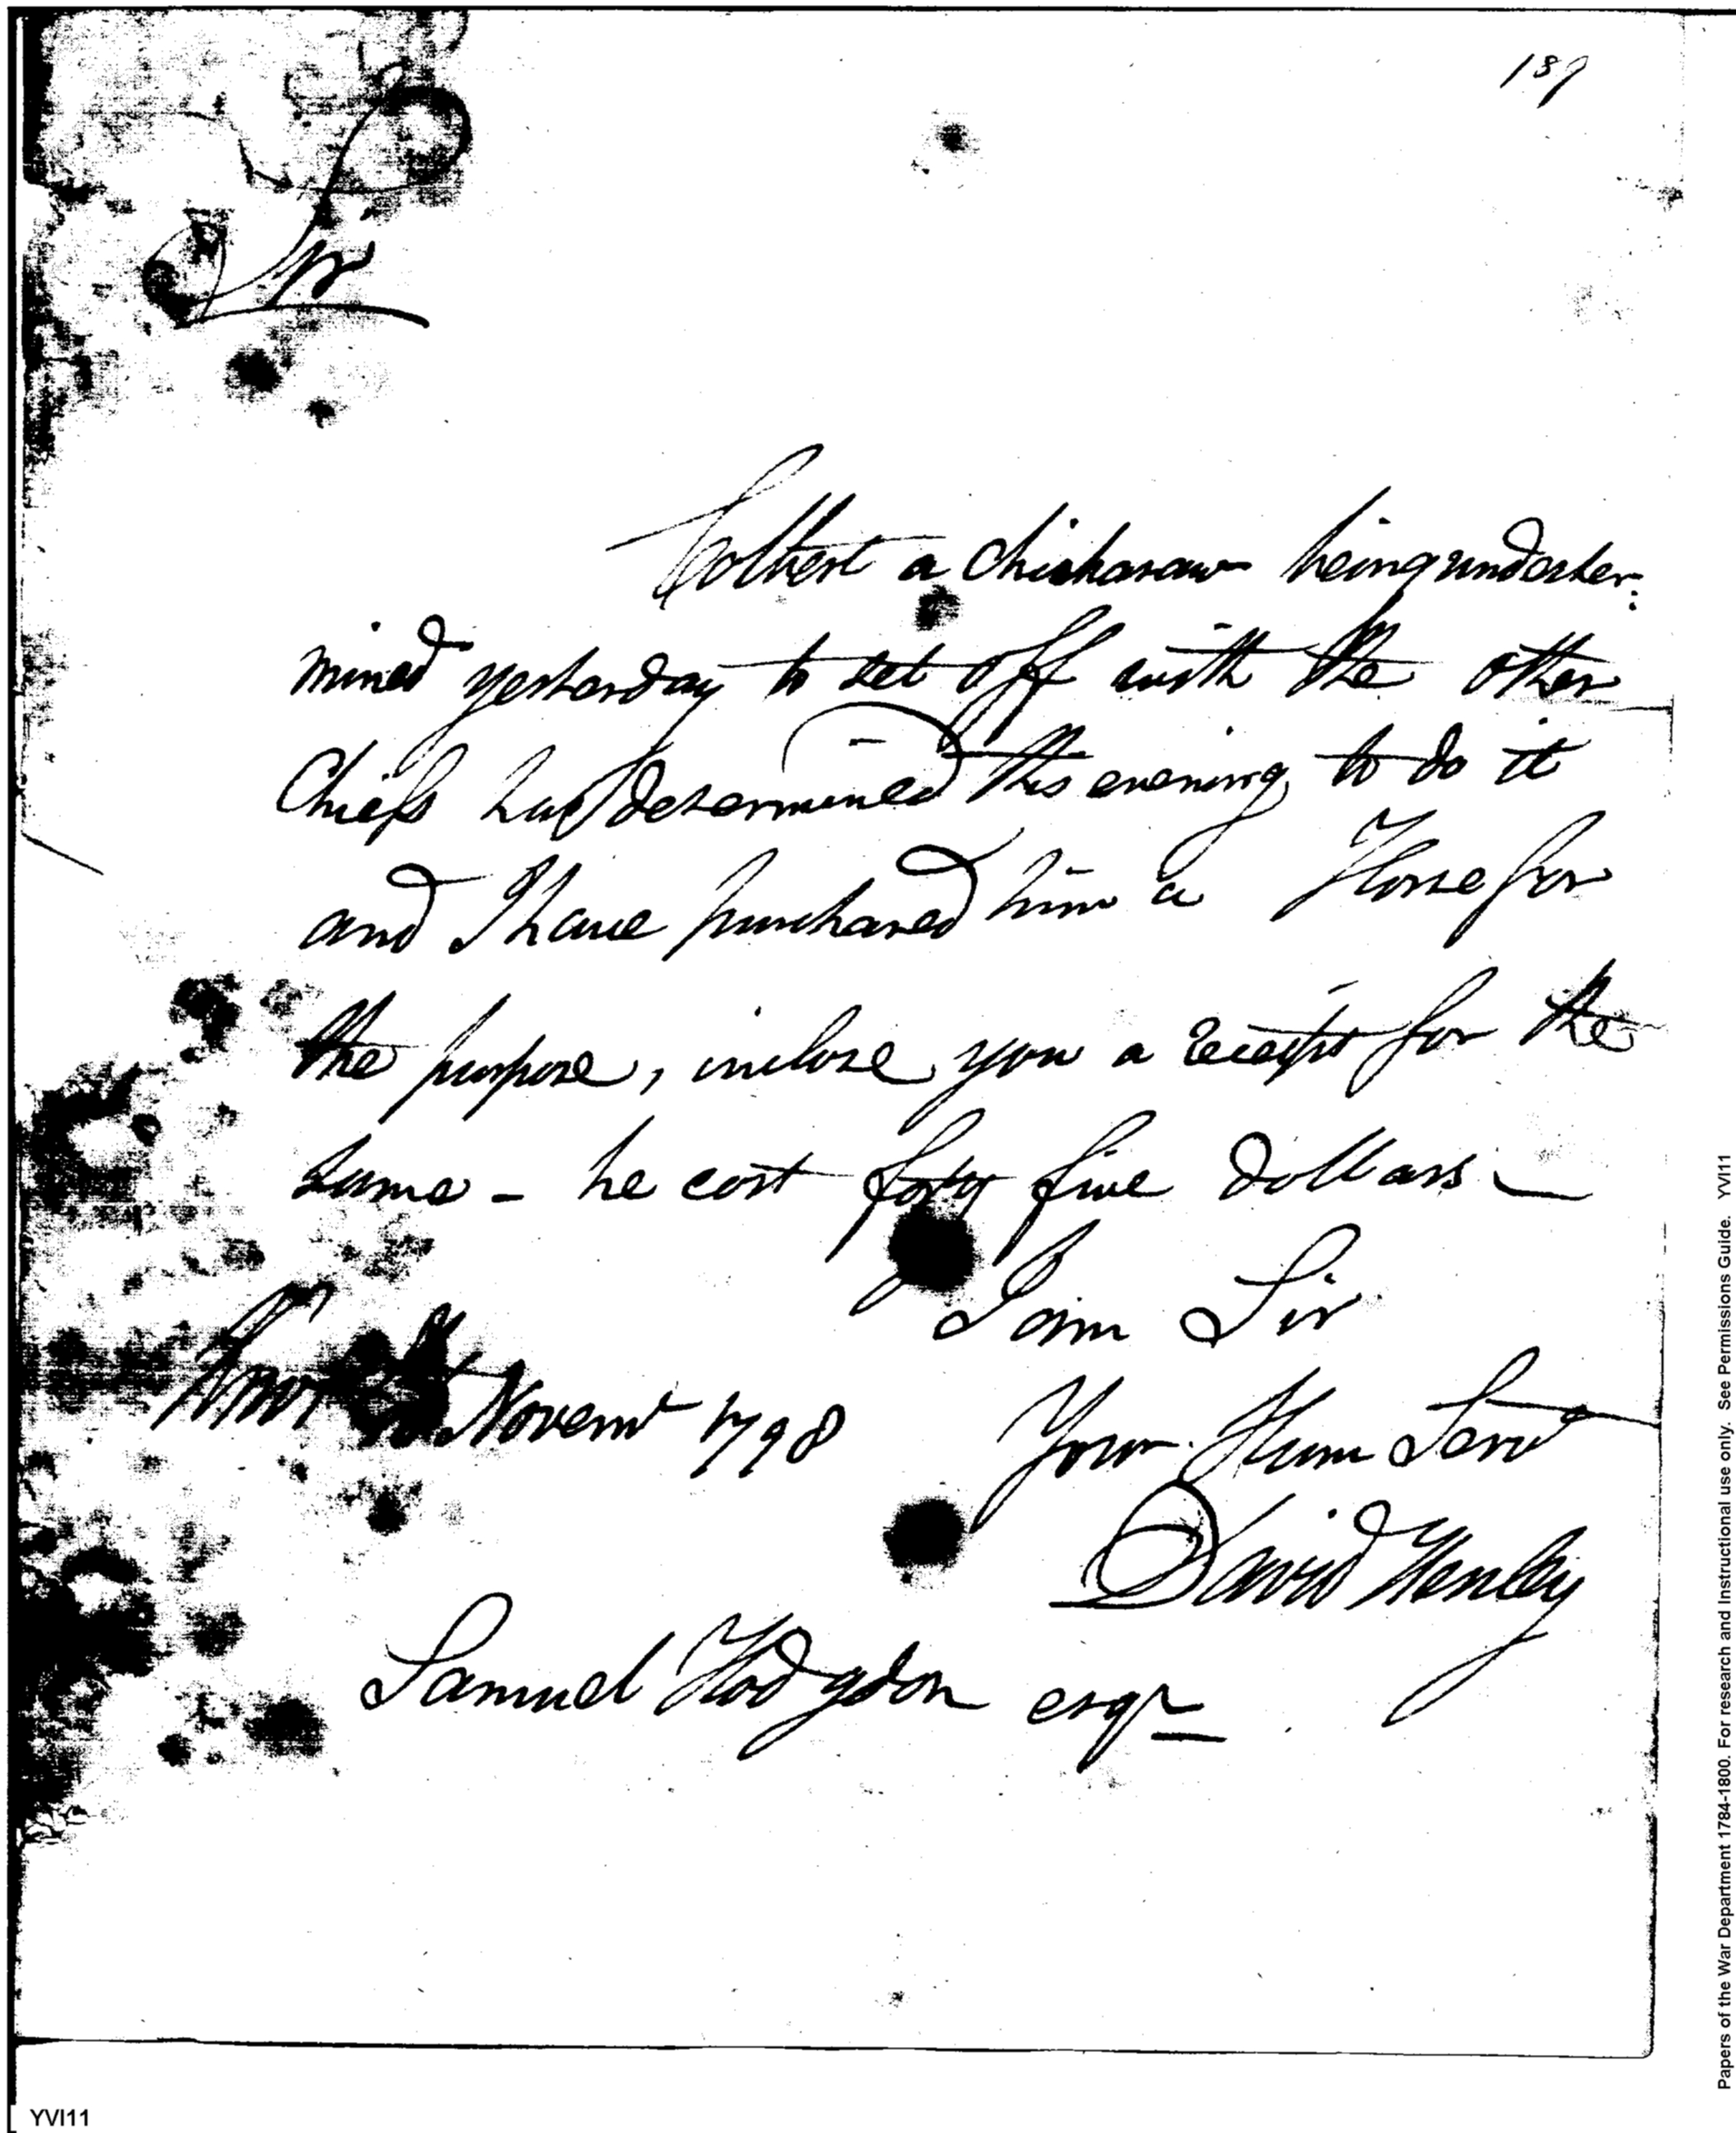 189
Sir
Colbert a Chickasaw being undeter:
mined yesterday to set off with the other
Chiefs has determined this evening to do it
and I have purchased him a Horse for
the purpose, inclose you a receipt for the
same - he cost forty five dollars -
I am Sir
Novemr 1798 Your Hum Servt
David Henley
Samuel Hodgdon esqr
YVI11
Papers of the War Department 1784-1800. For research and Instructional use only. See Permissions Guide. YVI11